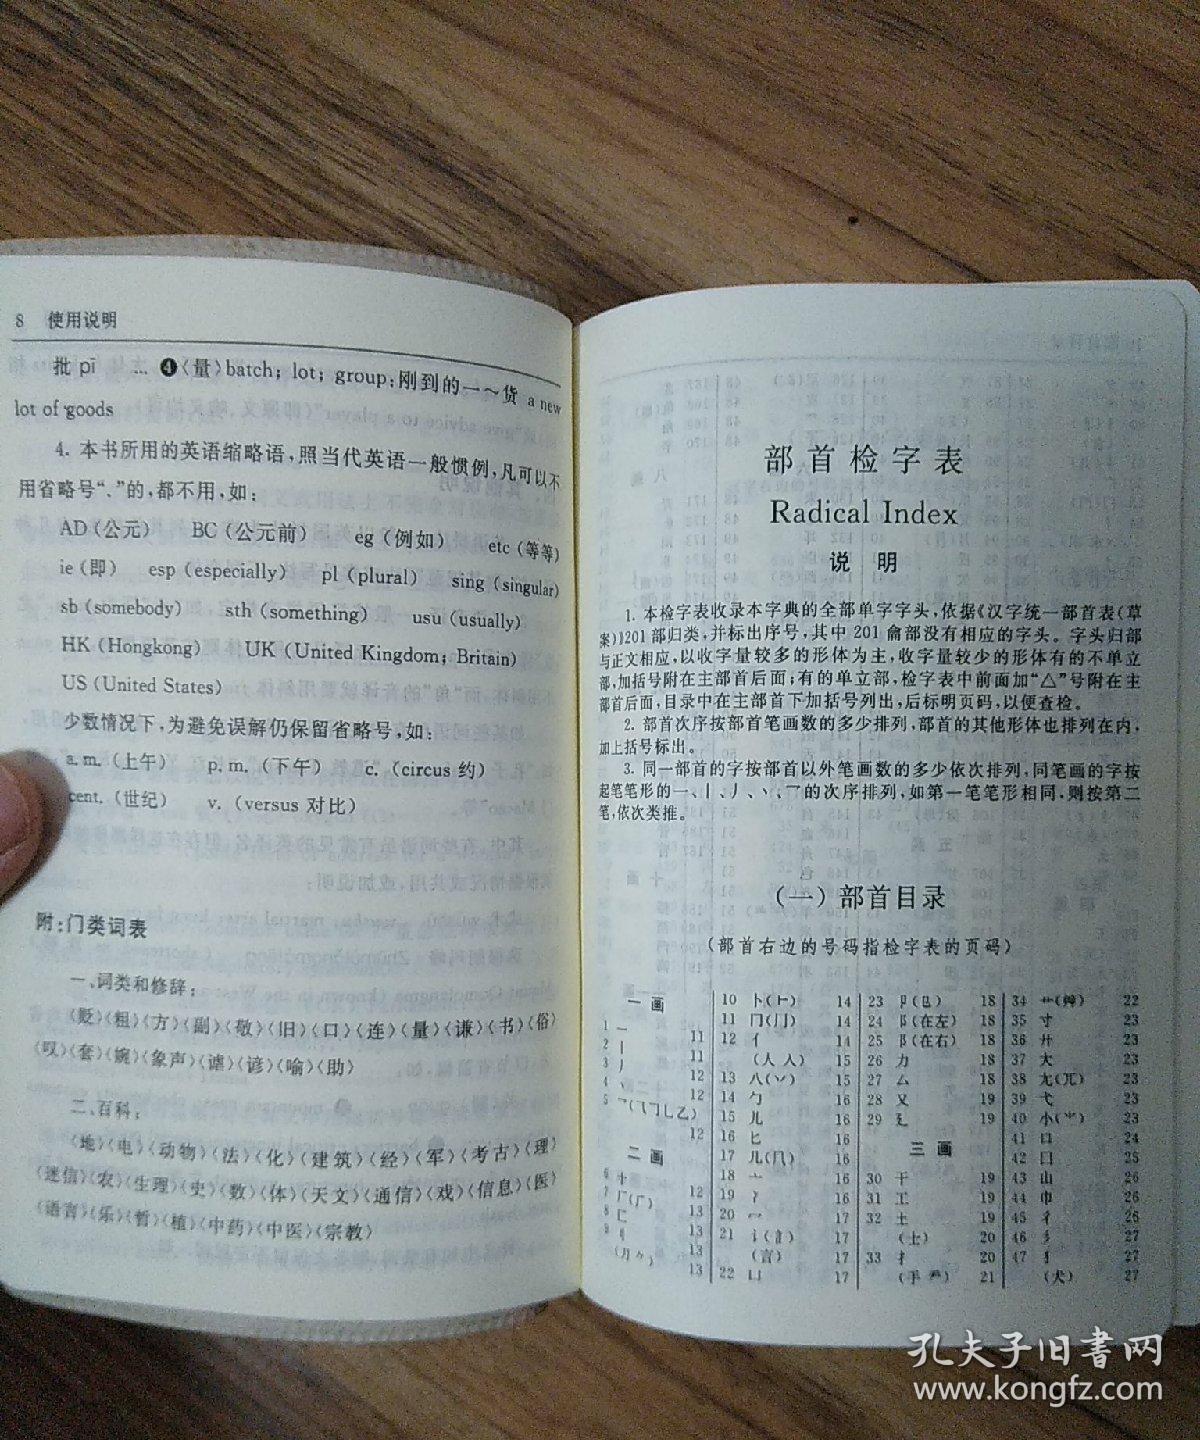 8 使用说明
批 pī … ❹〈量〉batch; lot; group:刚到的一～货 a new
lot of goods
4. 本书所用的英语缩略语,照当代英语一般惯例,凡可以不
用省略号“.”的,都不用,如:
AD (公元) BC (公元前) eg (例如) etc (等等)
ie (即) esp (especially) pl (plural) sing (singular)
sb (somebody) sth (something) usu (usually)
HK (Hongkong) UK (United Kingdom; Britain)
US (United States)
少数情况下,为避免误解仍保留省略号,如:
a.m. (上午) p.m. (下午) c. (circus 约)
cent. (世纪) v. (versus 对比)
附:门类词表
一、词类和修辞:
〈贬〉〈粗〉〈方〉〈副〉〈敬〉〈旧〉〈口〉〈连〉〈量〉〈谦〉〈书〉〈俗〉
〈叹〉〈套〉〈婉〉〈象声〉〈谑〉〈谚〉〈喻〉〈助〉
二、百科:
〈地〉〈电〉〈动物〉〈法〉〈化〉〈建筑〉〈经〉〈军〉〈考古〉〈理〉
〈迷信〉〈农〉〈生理〉〈史〉〈数〉〈体〉〈天文〉〈通信〉〈戏〉〈信息〉〈医〉
〈语言〉〈乐〉〈哲〉〈植〉〈中药〉〈中医〉〈宗教〉
部首检字表
Radical Index
说 明
1. 本检字表收录本字典的全部单字字头,依据《汉字统一部首表(草
案)》201部归类,并标出序号,其中 201 龠部没有相应的字头。字头归部
与正文相应,以收字量较多的形体为主,收字量较少的形体有的不单立
部,加括号附在主部首后面;有的单立部,检字表中前面加“△”号附在主
部首后面,目录中在主部首下加括号列出,后标明页码,以便查检。
2. 部首次序按部首笔画数的多少排列,部首的其他形体也排列在内,
加上括号标出。
3. 同一部首的字按部首以外笔画数的多少依次排列,同笔画的字按
起笔笔形的一、丨、丿、丶、乛的次序排列,如第一笔笔形相同,则按第二
笔,依次类推。
(一) 部首目录
(部首右边的号码指检字表的页码)
一 画
1 一 11
2 丨 11
3 丿 12
4 丶 12
5 乛(乁乚乙) 12
二 画
6 十 12
7 厂(⺁) 13
8 匚 13
9 刂 13
13
10 卜(⺊) 14
11 冂(⺆) 14
12 亻 14
(人 入) 15
13 八(丷) 15
14 勹 16
15 儿 16
16 匕 16
17 几(⺇) 16
18 亠 16
19 冫 16
20 冖 17
21 讠(訁) 17
(言) 17
22 凵 17
23 卩(㔾) 18
24 阝(在左) 18
25 阝(在右) 18
26 力 18
27 厶 18
28 又 19
29 廴 19
三 画
30 干 19
31 工 19
32 土 19
(士) 20
33 扌 20
(手 龵) 21
34 艹(艸) 22
35 寸 23
36 廾 23
37 大 23
38 尢(兀) 23
39 弋 23
40 小(⺌) 23
41 口 24
42 囗 25
43 山 26
44 巾 26
45 彳 26
46 彡 27
47 犭 27
(犬) 27
孔夫子旧书网
www.kongfz.com